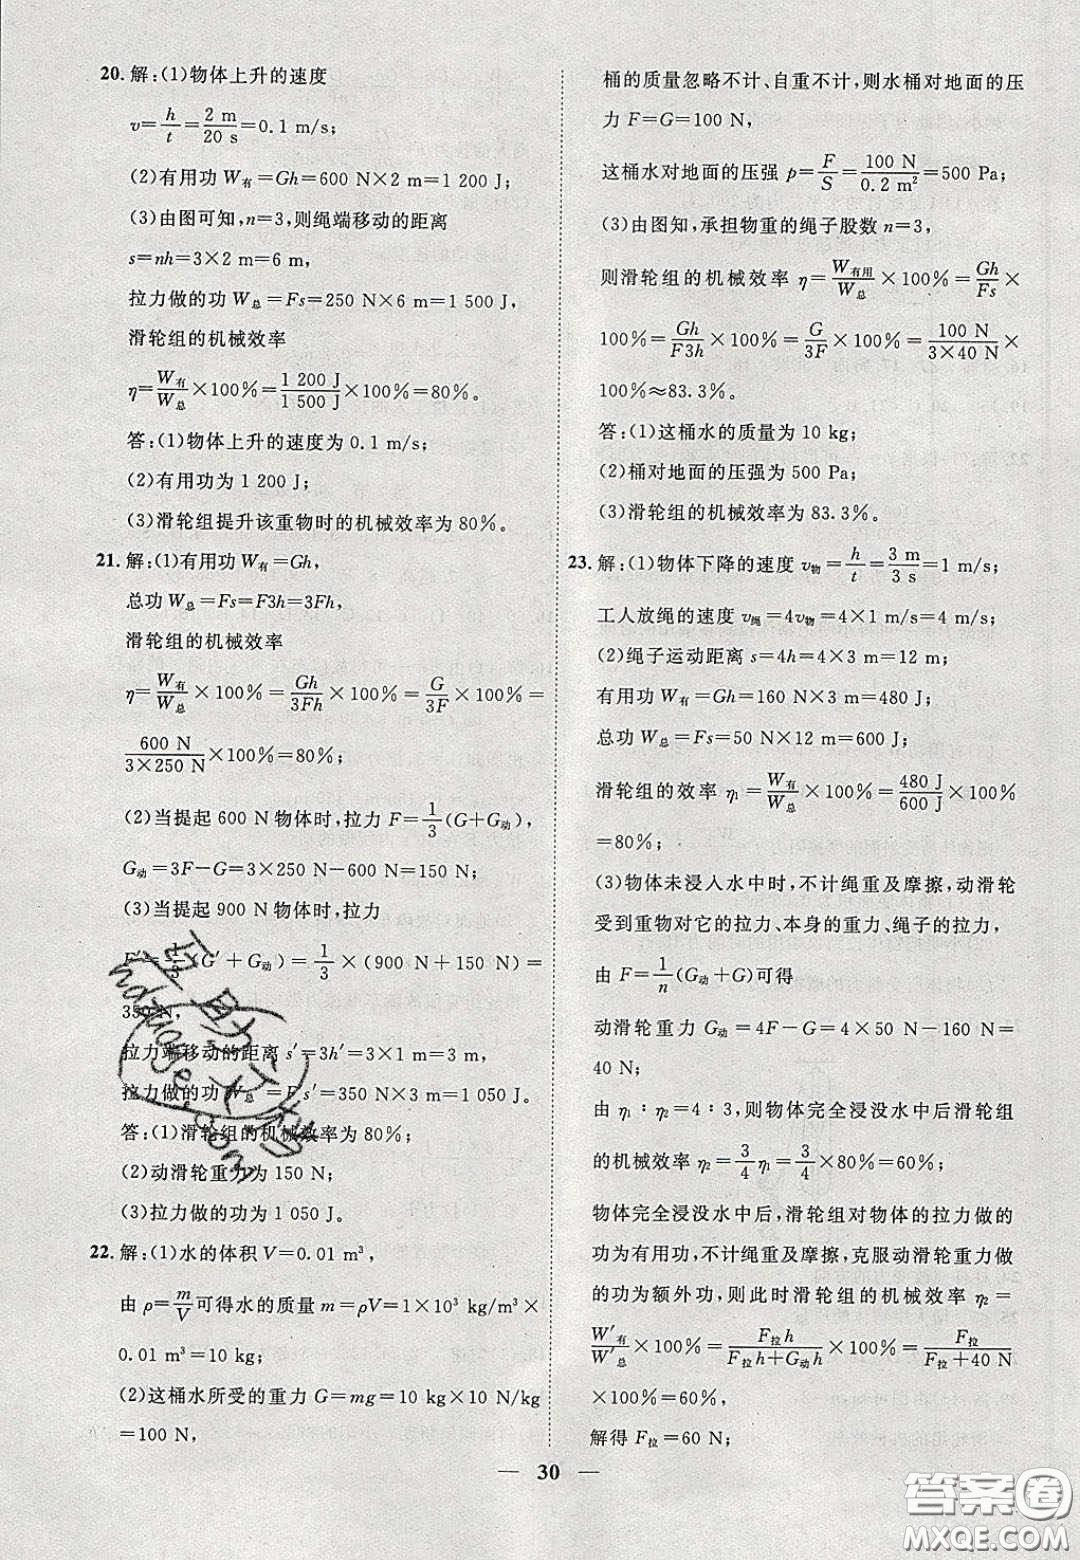 20. 解:(1)物体上升的速度
v=h/t=2 m/20 s=0.1 m/s;
(2)有用功 W有=Gh=600 N×2 m=1 200 J;
(3)由图可知,n=3,则绳端移动的距离
s=nh=3×2 m=6 m,
拉力做的功 W总=Fs=250 N×6 m=1 500 J,
滑轮组的机械效率
η=W有/W总×100%=1 200 J/1 500 J×100%=80%。
答:(1)物体上升的速度为 0.1 m/s;
(2)有用功为 1 200 J;
(3)滑轮组提升该重物时的机械效率为 80%。
21. 解:(1)有用功 W有=Gh,
总功 W总=Fs=F3h=3Fh,
滑轮组的机械效率
η=W有/W总×100%=Gh/3Fh×100%=G/3F×100%=
600 N/3×250 N×100%=80%;
(2)当提起 600 N 物体时,拉力 F=1/3(G+G动),
G动=3F-G=3×250 N-600 N=150 N;
(3)当提起 900 N 物体时,拉力
F′=1/3(G′+G动)=1/3×(900 N+150 N)=
350 N,
拉力端移动的距离 s′=3h′=3×1 m=3 m,
拉力做的功 W总′=F′s′=350 N×3 m=1 050 J。
答:(1)滑轮组的机械效率为 80%;
(2)动滑轮重力为 150 N;
(3)拉力做的功为 1 050 J。
22. 解:(1)水的体积 V=0.01 m³,
由 ρ=m/V可得水的质量 m=ρV=1×10³ kg/m³×
0.01 m³=10 kg;
(2)这桶水所受的重力 G=mg=10 kg×10 N/kg
=100 N,
桶的质量忽略不计、自重不计,则水桶对地面的压
力 F=G=100 N,
这桶水对地面的压强 p=F/S=100 N/0.2 m²=500 Pa;
(3)由图知,承担物重的绳子股数 n=3,
则滑轮组的机械效率 η=W有用/W总×100%=Gh/Fs×
100%=Gh/F3h×100%=G/3F×100%=100 N/3×40 N×
100%≈83.3%。
答:(1)这桶水的质量为 10 kg;
(2)桶对地面的压强为 500 Pa;
(3)滑轮组的机械效率为 83.3%。
23. 解:(1)物体下降的速度 v物=h/t=3 m/3 s=1 m/s,
工人放绳的速度 v绳=4v物=4×1 m/s=4 m/s;
(2)绳子运动距离 s=4h=4×3 m=12 m,
有用功 W有=Gh=160 N×3 m=480 J;
总功 W总=Fs=50 N×12 m=600 J;
滑轮组的效率 η₁=W有/W总×100%=480 J/600 J×100%
=80%;
(3)物体未浸入水中时,不计绳重及摩擦,动滑轮
受到重物对它的拉力、本身的重力、绳子的拉力,
由 F=1/n(G动+G)可得
动滑轮重力 G动=4F-G=4×50 N-160 N=
40 N;
由 η₁∶η₂=4∶3,则物体完全浸没水中后滑轮组
的机械效率 η₂=3/4η₁=3/4×80%=60%;
物体完全浸没水中后,滑轮组对物体的拉力做的
功为有用功,不计绳重及摩擦,克服动滑轮重力做
的功为额外功,则此时滑轮组的机械效率 η₂=
W′有/W′总×100%=F拉h/F拉h+G动h×100%=F拉/F拉+40 N
×100%=60%,
解得 F拉=60 N;
— 30 —
答案圈
MXQE.COM